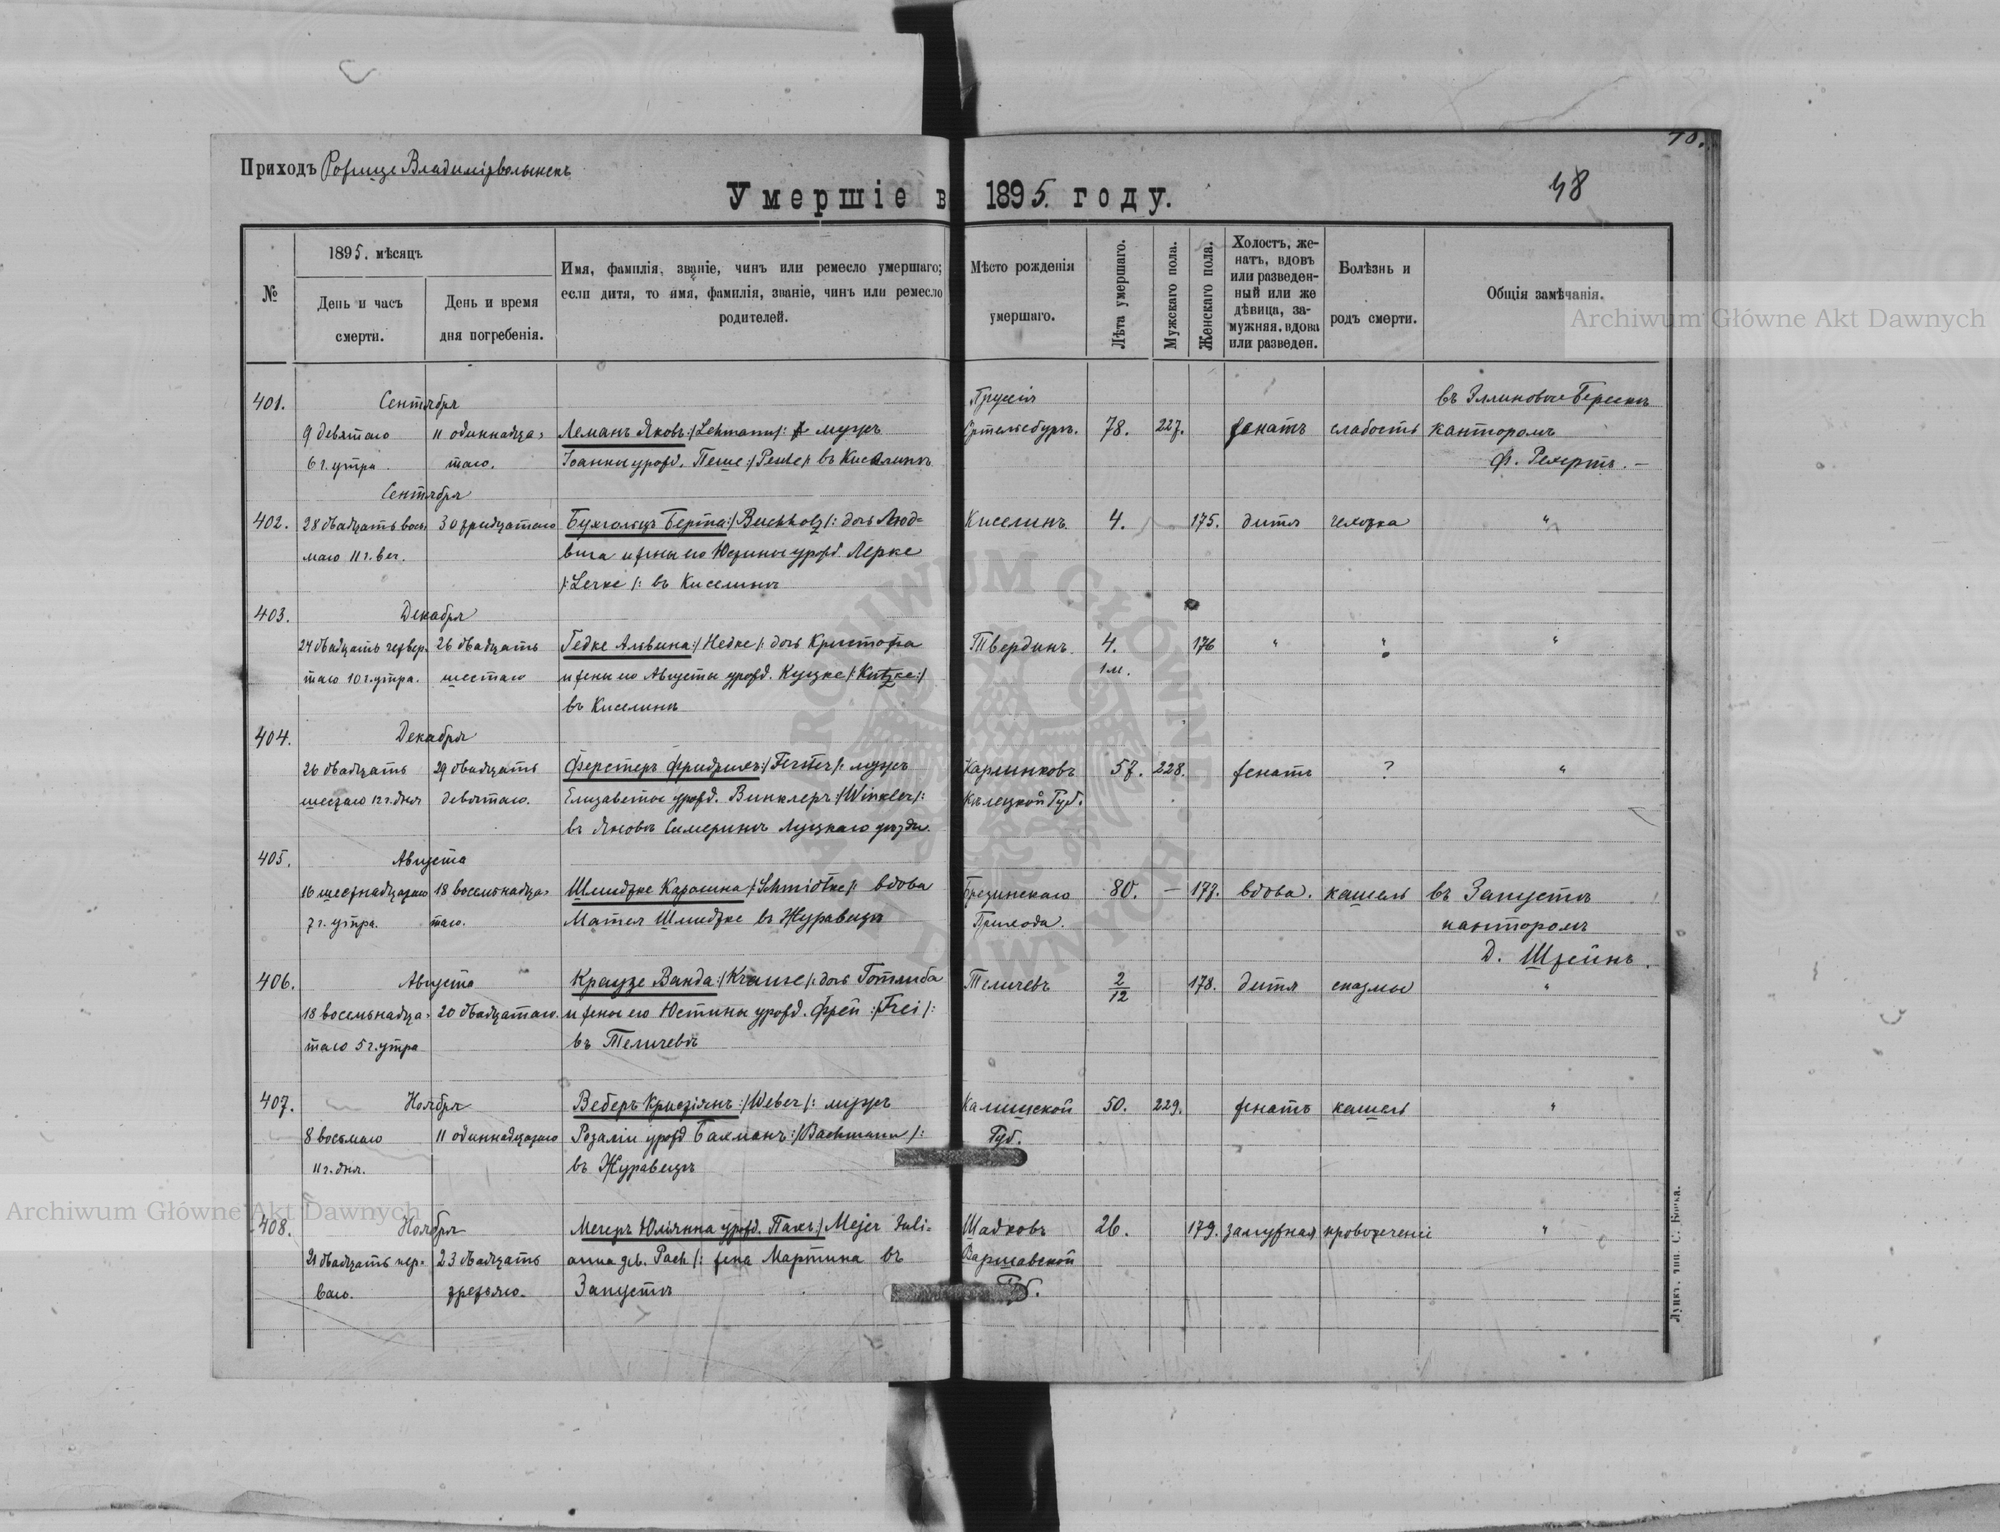 70.
Приходъ Рожище Владимірволынскъ
48
Умершіе въ 1895. году.
№
1895. мѣсяцъ
День и часъ смерти.
День и время дня погребенія.
Имя, фамилія, званіе, чинъ или ремесло умершаго;
если дитя, то имя, фамилія, званіе, чинъ или ремесло
родителей.
Мѣсто рожденія
умершаго.
Лѣта умершаго.
Мужскаго пола.
Женскаго пола.
Холостъ, же-
натъ, вдовъ
или разведен-
ный или же
дѣвица, за-
мужняя, вдова
или разведен.
Болѣзнь и
родъ смерти.
Общія замѣчанія.
Archiwum Główne Akt Dawnych
401. Сентября Пруссія въ
9 девятаго 11 одиннадца- Леманъ Яковъ /:Lehmann:/ мужъ Ортельсбургъ. 78. 227. женатъ слабость канторомъ
6 г. утра таго. Іоанны урожд. въ Киселинѣ Ф.
Сентября
402. 28 двадцать вось- 30 тридцатаго Бухгольцъ Берта /:Buchholz:/ дочь Люд- Киселинъ 4. 175. дитя чахотка "
маго 11 г. веч. вига и жены его Юстины урожд. Лерке
/:Lerke:/ въ Киселинѣ
403. Декабря
24 двадцать четвер- 26 двадцать Гедке Альвина /:Hedke:/ дочь Кристофа Твердинъ 4. 176 " ? "
таго 10 г. утра. шестаго и жены его Августы урожд. Куцке /:Kutzke:/ 1 м.
въ Киселинѣ
404. Декабря
26 двадцать 29 двадцать Ферстеръ Фридрихъ /:Ferster:/ мужъ 57. 228. женатъ ? "
шестаго 12 г. дня девятаго. Елизаветы урожд. Винклеръ /:Winkler:/ Кѣлецкой Губ.
въ Яновѣ Луцкаго уѣзда.
405. Августа
16 шестнадцатаго 18 восемнадца- Шмидтке Каролина /:Schmidtke:/ вдова Брезинскаго 80. — 177. вдова. кашель въ Запустѣ
7 г. утра. таго. Шмидтке въ Журавецъ Прихода. канторомъ
Д. Штейнъ.
406. Августа Краузе Ванда /:Krause:/ дочь Готлиба Теличевъ 2/12 178. дитя спазмы "
18 восемьнадца- 20 двадцатаго. и жены его Юстины урожд. Фрей /:Frei:/
таго 5 г. утра въ Теличевѣ
407. Ноября Веберъ Кристіянъ /:Weber:/ мужъ Калишской 50. 229. женатъ кашель "
8 восьмаго 11 одиннадцатаго Розаліи урожд Бахманъ /:Bachmann:/ Губ.
11 г. дня. въ Журавецъ
Archiwum Główne Akt Dawnych
408. Ноября Мегеръ Юліянна урожд. Пахъ /:Mejer Juli- Шадковъ 26. 179. замужная кровотеченіе "
21 двадцать пер- 23 двадцать anna geb. Pach:/ жена Мартина въ Варшавской
ваго. третьяго. Запустѣ Губ.
ARCHIWUM GŁÓWNE AKT DAWNYCH
Луцкъ, тип. С. Бойка.